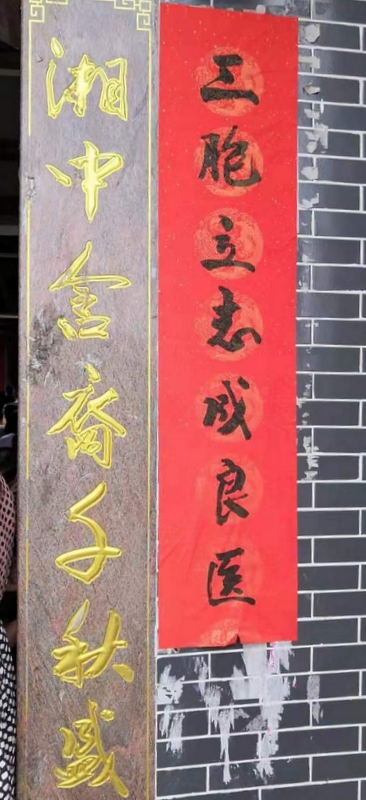 三胞立志成良医
湘中裔千秋盛